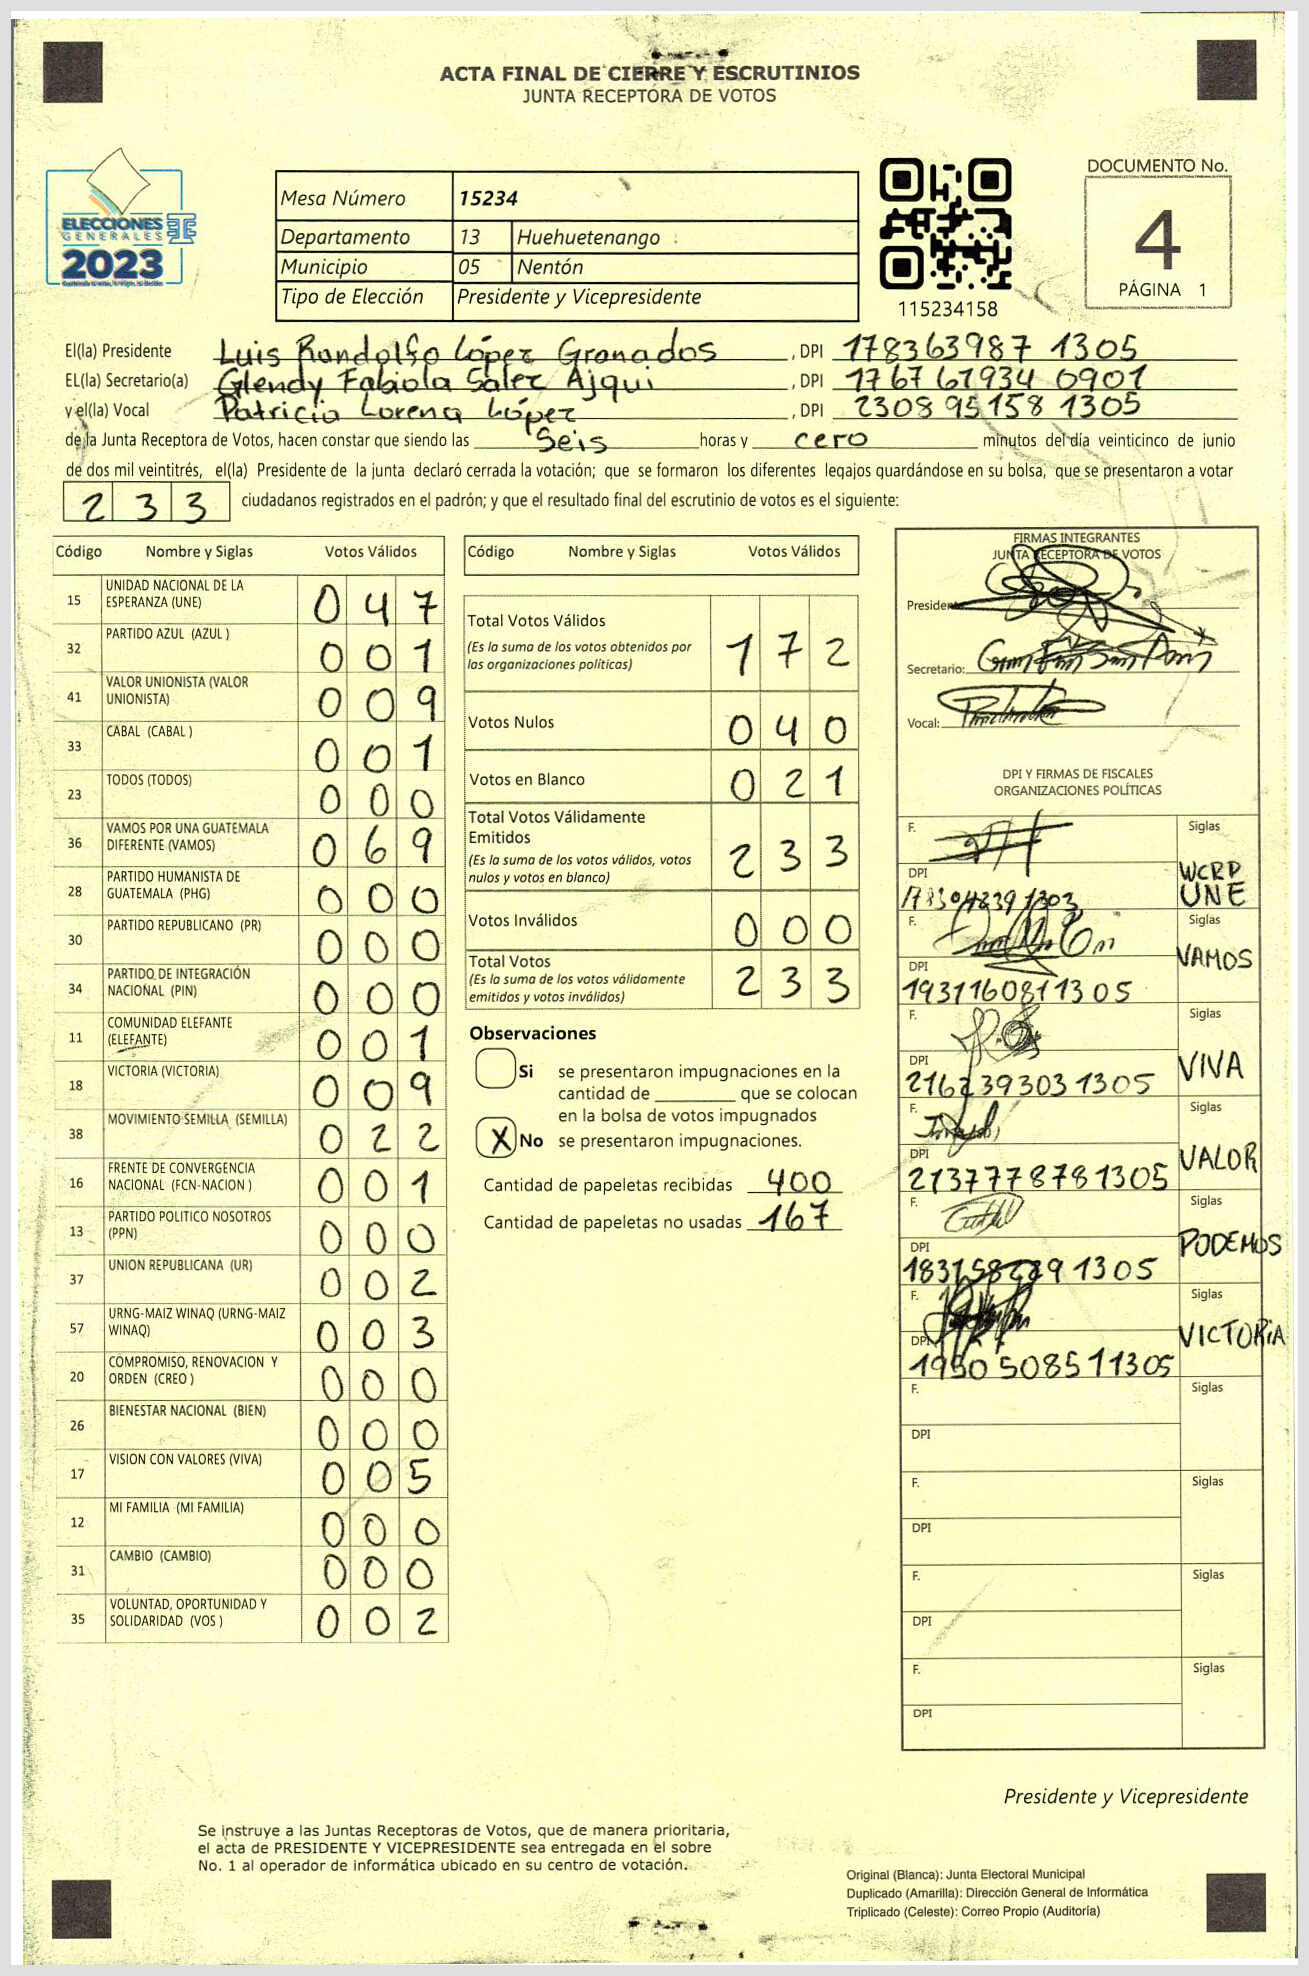 ACTA FINAL DE CIERRE Y ESCRUTINIOS
JUNTA RECEPTORA DE VOTOS
ELECCIONES
GENERALES
2023
Mesa Número 15234
Departamento 13 Huehuetenango
Municipio 05 Nentón
Tipo de Elección Presidente y Vicepresidente
115234158
DOCUMENTO No.
4
PÁGINA 1
El(la) Presidente Luis Randolfo López Granados , DPI 178363987 1305
EL(la) Secretario(a) Glendy Fabiola Salez Ajqui , DPI 1767 67934 0901
y el(la) Vocal Patricia Lorena López , DPI 2308 95158 1305
de la Junta Receptora de Votos, hacen constar que siendo las Seis horas y cero minutos del día veinticinco de junio
de dos mil veintitrés, el(la) Presidente de la junta declaró cerrada la votación; que se formaron los diferentes legajos guardándose en su bolsa, que se presentaron a votar
233 ciudadanos registrados en el padrón; y que el resultado final del escrutinio de votos es el siguiente:
Código Nombre y Siglas Votos Válidos
15 UNIDAD NACIONAL DE LA ESPERANZA (UNE) 047
32 PARTIDO AZUL (AZUL ) 001
41 VALOR UNIONISTA (VALOR UNIONISTA) 009
33 CABAL (CABAL ) 001
23 TODOS (TODOS) 000
36 VAMOS POR UNA GUATEMALA DIFERENTE (VAMOS) 069
28 PARTIDO HUMANISTA DE GUATEMALA (PHG) 000
30 PARTIDO REPUBLICANO (PR) 000
34 PARTIDO DE INTEGRACIÓN NACIONAL (PIN) 000
11 COMUNIDAD ELEFANTE (ELEFANTE) 001
18 VICTORIA (VICTORIA) 009
38 MOVIMIENTO SEMILLA (SEMILLA) 022
16 FRENTE DE CONVERGENCIA NACIONAL (FCN-NACION ) 001
13 PARTIDO POLITICO NOSOTROS (PPN) 000
37 UNION REPUBLICANA (UR) 002
57 URNG-MAIZ WINAQ (URNG-MAIZ WINAQ) 003
20 COMPROMISO, RENOVACION Y ORDEN (CREO ) 000
26 BIENESTAR NACIONAL (BIEN) 000
17 VISION CON VALORES (VIVA) 005
12 MI FAMILIA (MI FAMILIA) 000
31 CAMBIO (CAMBIO) 000
35 VOLUNTAD, OPORTUNIDAD Y SOLIDARIDAD (VOS ) 002
Código Nombre y Siglas Votos Válidos
Total Votos Válidos
(Es la suma de los votos obtenidos por las organizaciones políticas) 172
Votos Nulos 040
Votos en Blanco 021
Total Votos Válidamente Emitidos
(Es la suma de los votos válidos, votos nulos y votos en blanco) 233
Votos Inválidos 000
Total Votos
(Es la suma de los votos válidamente emitidos y votos inválidos) 233
Observaciones
Si se presentaron impugnaciones en la
cantidad de ________ que se colocan
en la bolsa de votos impugnados
X No se presentaron impugnaciones.
Cantidad de papeletas recibidas 400
Cantidad de papeletas no usadas 167
FIRMAS INTEGRANTES
JUNTA RECEPTORA DE VOTOS
Presidente:
Secretario:
Vocal:
DPI Y FIRMAS DE FISCALES
ORGANIZACIONES POLÍTICAS
F. Siglas
WCRP
UNE
DPI
F. Siglas
VAMOS
DPI
1931160811305
F. Siglas
VIVA
DPI
2162393031305
F. Siglas
VALOR
DPI
2137778781305
F. Siglas
PODEMOS
DPI
F. Siglas
VICTORIA
DPI
1950508511305
F. Siglas
DPI
F. Siglas
DPI
F. Siglas
DPI
F. Siglas
DPI
Presidente y Vicepresidente
Se instruye a las Juntas Receptoras de Votos, que de manera prioritaria,
el acta de PRESIDENTE Y VICEPRESIDENTE sea entregada en el sobre
No. 1 al operador de informática ubicado en su centro de votación.
Original (Blanca): Junta Electoral Municipal
Duplicado (Amarilla): Dirección General de Informática
Triplicado (Celeste): Correo Propio (Auditoría)